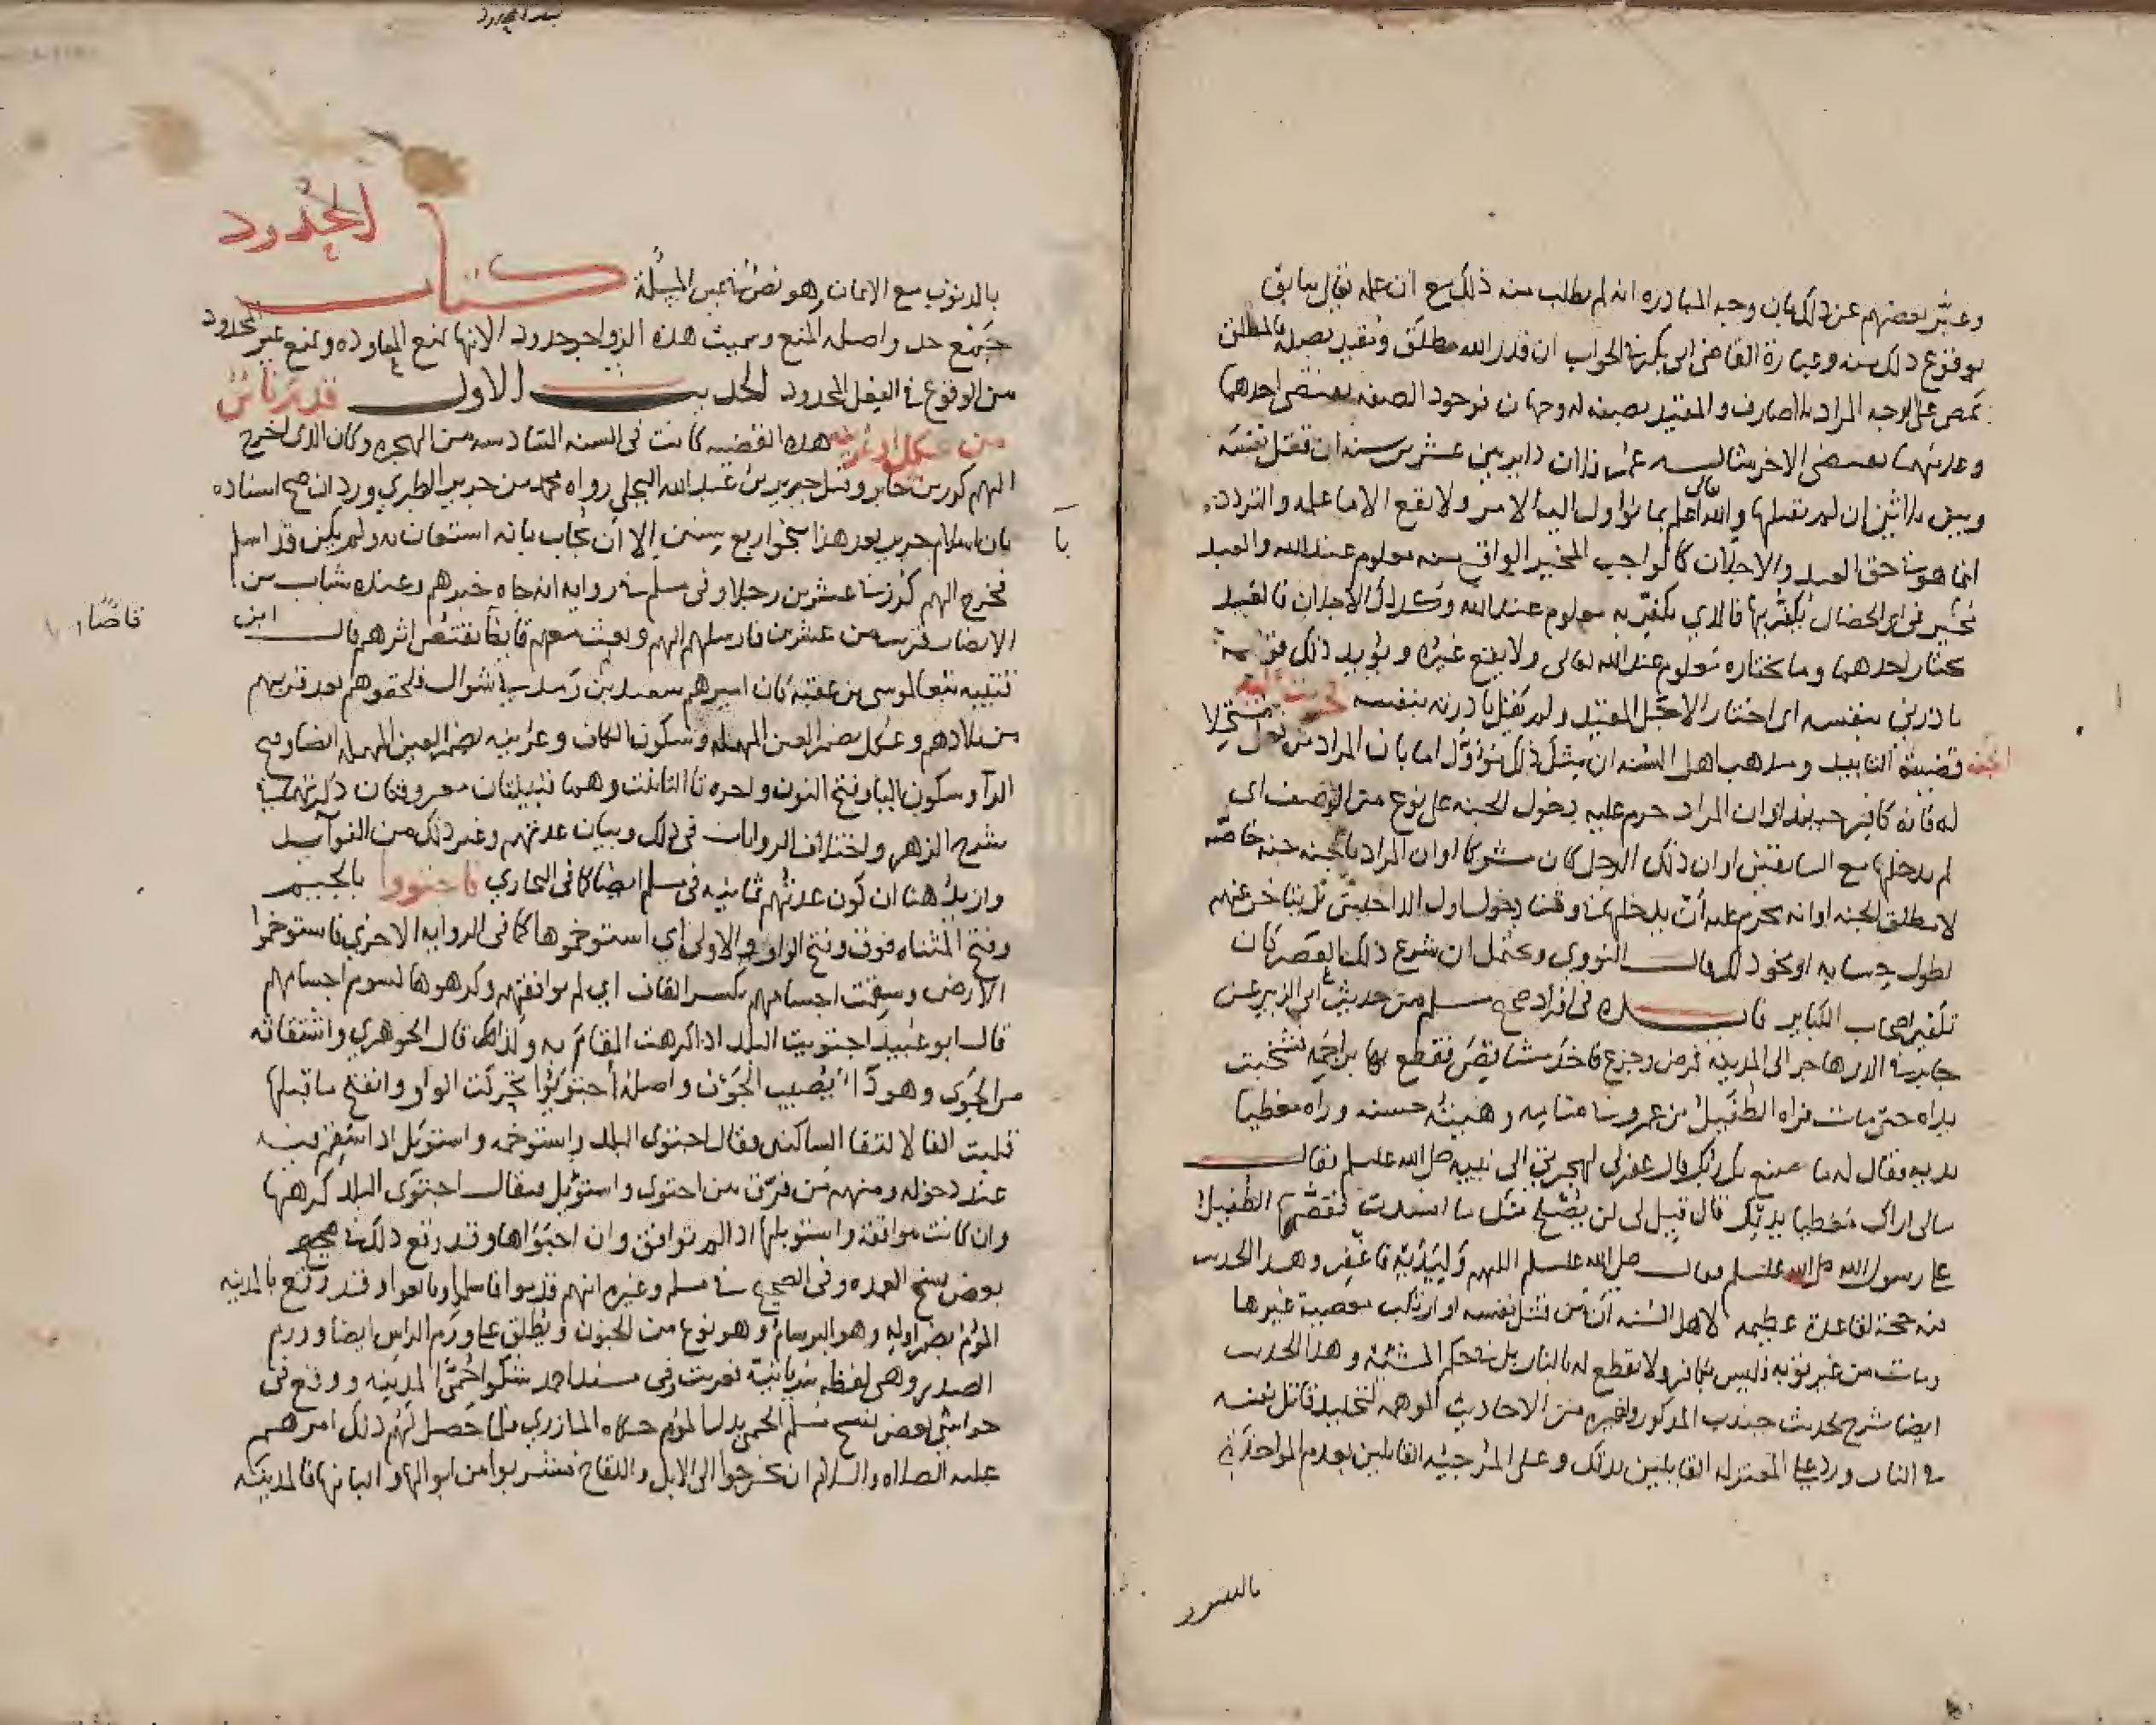 وعبر بعضهم عن ذلك بان وجه المبادره انه لم يطلب منه ذلك مع ان علمه تعالى سابق
بوقوع ذلك منه وعبارة القاضي ابي بكر الجواب ان قدر الله مطلق ومقيد بصفه فالمطلق
يمضي على الوجه المراد بلا صارف والمقيد بصفه له وجهان فوجود الصفه يقتضي احدهما
وعدمها يقتضي الاخر مثاله عمر ذان داير بين عشرين سنه ان قتل نفسه
وبين ثلاثين ان لم يقتلها والله اعلم بما يؤول اليه الامر ولا يقع الا ما علمه والتردد
انما هو في حق العبد والاجلان كالواجب المخير الواقع منه معلوم عند الله والعبد
مخير في اي الخصال يكفر بها فالذي يكفر به معلوم عند الله وكذلك الاجلان فالعبد
يختار احدهما وما يختاره معلوم عند الله تعالى ولا يقع غيره ويؤيد ذلك قوله
بادرني بنفسه اي اختار الاجل المقيد ولم يقل بادرته بنفسه حرمت عليه
الجنه قضيته التابيد ومذهب اهل السنه ان مثل ذلك مؤول اما بان المراد من فعل مستحلا
له فانه كافر حينيذ او ان المراد حرم عليه دخول الجنه على نوع من الوصف اي
لم يدخلها مع السابقين او ان ذلك الرجل كان مشركا او ان المراد بالجنه جنه خاصه
لا مطلق الجنه او انه يحرم عليه ان يدخلها في وقت دخول اول الداخلين بل يتاخر عنهم
لطول حسابه او نحو ذلك قال النووي ويحتمل ان شرع ذلك العصر كان
تكفير اصحاب الكباير فايده في افراد صحيح مسلم من حديث ابي الزبير عن
جابر هاجر الى المدينه فمرض وجزع فاخذ مشاقص فقطع بها براجمه فشخبت
يداه حتى مات فراه الطفيل بن عمرو في منامه وهيئته حسنه وراه مغطيا
يديه فقال له ما صنع بك ربك قال غفر لي لهجرتي الى نبيه صلى الله عليه وسلم فقال
مالي اراك مغطيا يديك قال قيل لي لن نصلح منك ما افسدت فقصها الطفيل
على رسول الله صلى الله عليه وسلم فقال صلى الله عليه وسلم اللهم وليديه فاغفر وهذا الحديث
فيه حجة لقاعدة عظيمه لاهل السنه ان من قتل نفسه او ارتكب معصية غيرها
ومات من غير توبه فليس بكافر ولا يقطع له بالنار بل في حكم المشيئة وهذا الحديث
ايضا شرح لحديث جندب المذكور ولغيره من الاحاديث الموهمه لتخليد قاتل نفسه
في النار ورد على المعتزله القايلين بذلك وعلى المرجيه القايلين بعدم المواخذة
بالذنوب
بالذنوب مع الايمان وهو نص في عين المسئلة
كتاب الحدود
جمع حد واصله المنع وسميت هذه الزواجر حدود الانها تمنع المعاوده وتمنع غير المحدود
من الوقوع في الفعل المحدود الحديث الاول قدم ناس
من عكل او عرينه هذه القضيه كانت في السنه السادسه من الهجره وكان الذي اخرج
اليهم كرز بن جابر وقيل جرير بن عبد الله البجلي رواه محمد بن جرير الطبري ورد ان صح اسناده
بان اسلام جرير بعد هذا بنحو اربع سنين الا ان يجاب بانه استعان به ولم يكن قد اسلم
فخرج اليهم كرز في عشرين رجلا وفي مسلم في روايه انه جاه خبرهم وعنده شباب من
الانصار قريب من عشرين فارسلهم اليهم وبعث معهم قايفا يقتص اثرهم قال ابن
قتيبه تبعا لموسى بن عقبة كان اميرهم سعيد بن زيد في شوال فلحقوهم بعد قربهم
من بلادهم وعكل بضم العين المهمله وسكون الكاف وعرينه بضم العين المهمله ايضا وفتح
الرآ وسكون اليا وفتح النون واخره تا التانيث وهما قبيلتان معروفتان ذكرتهما في
شرح الزهر واختلاف الروايات في ذلك وبيان عدتهم وغير ذلك من الفوآيد
وازيد هنا ان كون عدتهم ثمانيه في مسلم ايضا كما في البخاري فاجتووا بالجيم
وفتح المثناه فوق وفتح الواو الاولى اي استوخموها كما في الروايه الاخرى فاستوخموا
الارض وسقمت اجسامهم بكسر القاف اي لم توافقهم وكرهوها لسوم اجسامهم
قال ابو عبيد اجتويت البلد اذا كرهت المقام به وكذا قال الجوهري واشتقاقه
من الجوى وهو دآ يصيب الجوف واصله اجتويوا تحركت الواو وانفتح ما قبلها
قلبت الفا لالتقا الساكنين وقال اجتوى البلد واستوخمه واستوبل اذا سقم فيه
عند دخوله ومنهم من فرق بين اجتوى واستوبل فيقال اجتوى البلد كرهها
وان كانت موافقة واستوبلها اذا لم توافق وان احبها وقد وقع ذلك في صحيح
بعض نسخ العمده وفي الصحيح في مسلم وغيره انهم قدموا فاسلموا وبايعوا وقد وقع بالمدينه
الموم بضم اوله وهو البرسام وهو نوع من الجنون ويطلق على ورم الراس ايضا وورم
الصدر وهي لفظه سريانية عربت وفي مسند احمد شكوا حمى المدينه ووقع في
حواشي بعض نسخ مسلم الحمى بدل الموم حكاه المازري فلما حصل لهم ذلك امرهم
عليه الصلاه والسلام ان يخرجوا الى الابل واللقاح فيشربوا من ابوالها والبانها فالمدينه